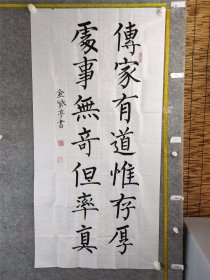 傳家有道惟存厚
處事無奇但率真
金紫亭書